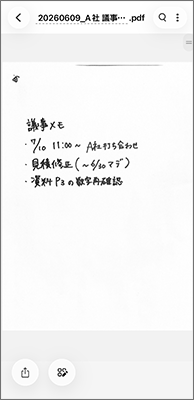 20260609_A社 議事… .pdf
議事メモ
・7/10 11:00〜 A社打ち合わせ
・見積修正(〜6/30マデ)
・資料P3の数字再確認